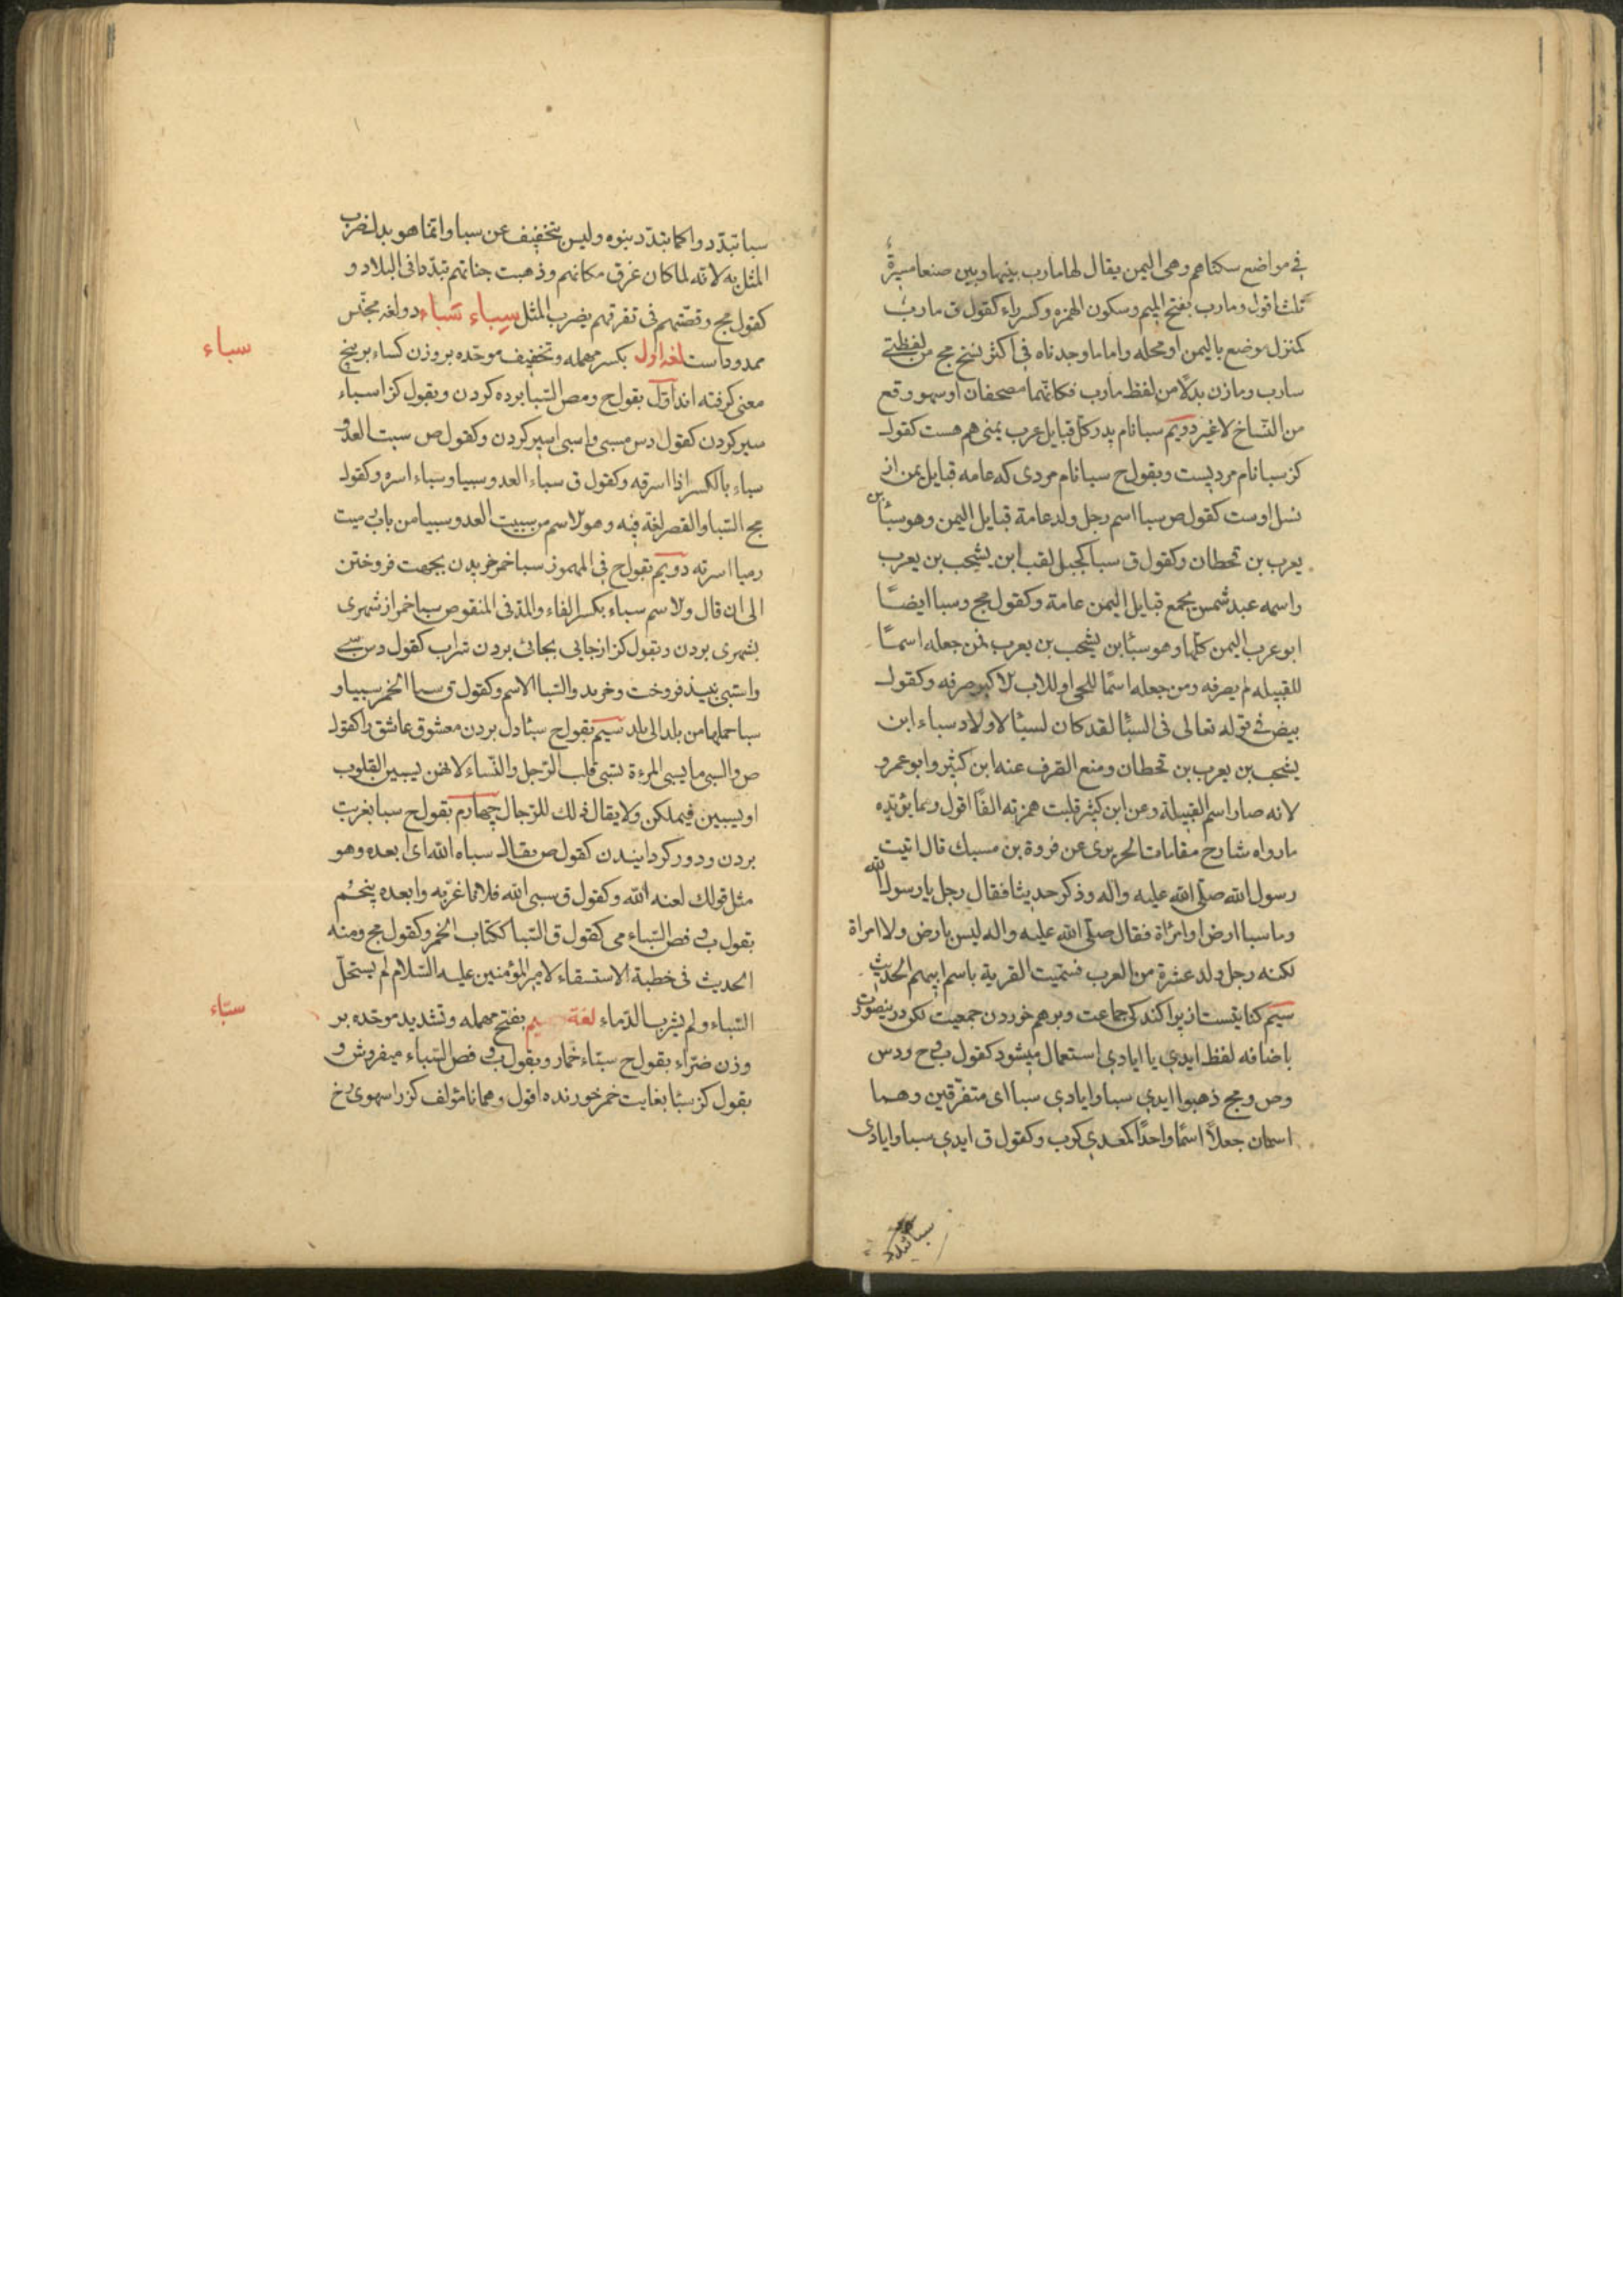 في مواضع سكناهم وهي اليمن يقال لها مارب بينها وبين صنعا مسيرة
ثلث اقول ومارب بفتح الميم وسكون الهمزه وكسر راء كقول ق مارب
كمنزل موضع باليمن او محله واما ما وجدناه في اكثر نسخ مج من لفظتي
سارب ومازن بدلا من لفظ مارب فكانهما مصحفان او سهو وقع
من النساخ لا غير دويم سبا نام پدر كل قبايل عرب يمني هم هست كقول
كز سبا نام مرديست وبقول ح سبا نام مردى كه عامه قبايل يمن از
نسل اوست كقول ص سبا اسم رجل ولد عامة قبايل اليمن وهو سبئا بن
يعرب بن قحطان وكقول ق سبا كجبل لقب ابن يشجب بن يعرب
واسمه عبد شمس يجمع قبايل اليمن عامة وكقول مج وسبا ايضًا
ابو عرب اليمن كلها وهو سبئا بن يشجب بن يعرب فمن جعله اسمًا
للقبيله لم يصرفه ومن جعله اسمًا للحي او للاب الاكبر صرفه وكقول
بيض في قوله تعالى في السبئا لقد كان لسبئا لاولاد سباء ابن
يشجب بن يعرب بن قحطان ومنع الصرف عنه ابن كثير وابو عمرو
لانه صار اسم القبيلة وعن ابن كثير قلبت همزته الفًا اقول ومما يؤيده
ما رواه شارح مقامات الحريري عن فروة بن مسيك قال اتيت
رسول الله صلى الله عليه واله وذكر حديثا فقال رجل يا رسول الله
وما سبا ارض او امراة فقال صلى الله عليه واله ليس بارض ولا امراة
لكنه رجل ولد عشرة من العرب فسميت القرية باسم ابيهم الحديث
سيم كنايتست از پراكندكى جماعت وبرهم خوردن جمعيت لكن در ينصورت
باضافه لفظ ايدي يا ايادي استعمال ميشود كقول ب وح ودس
وص ومج ذهبوا ايدي سبا وايادي سبا اى متفرقين وهما
اسمان جعلا اسمًا واحدًا كمعدي كرب وكقول ق ايدي سبا وايادى
سبا تبدد
سبا تبددوا كما تبدد بنوه وليس بتخفيف عن سبا وانما هو بدل ضرب
المثل به لانه لما كان غرق مكانهم وذهبت جناتهم تبددا في البلاد و
كقول مج وقصتهم في تفرقهم يضرب المثل سباء سباء دو لغه مجنس
سباء
ممدوداست لغه اول بكسر مهمله وتخفيف موحده بر وزن كساء بر پنج
معنى كرفته اند اول بقول ح ومص السبا برده كردن وبقول كز اسباء
سير كردن كقول دس مسبى واسبى اسير كردن وكقول ص سبت العدو
سباء بالكسر اذا اسرته وكقول ق سباء العدو سبيا وسباء اسره وكقول
مج السبا والقصر لغة فيه وهو الاسم من سبيت العدو سبيا من باب رميت
رميا اسرته دويم بقول ح في المهموز سبا خمر خريدن بجهت فروختن
الى ان قال والاسم سباء بكسر الفاء والمد في المنقوص سبا خمر از شهرى
بشهرى بردن وبقول كز از جايى بجائى بردن شراب كقول دس سبى
واستبى نبيذ فروخت وخريد والسبا الاسم وكقول ق سبا الخمر سبيا و
سبا حملها من بلد الى بلد سيم بقول ح سبئا دل بردن معشوق عاشق را كقول
ص والسبي ما يسبى المرءة تسبى قلب الرجل والنساء لانهن يسبين القلوب
او يسبين فيملكن ولا يقال ذلك للرجال چهارم بقول ح سبا بغربت
بردن ودور كردانيدن كقول ص يقال سباه الله اى ابعده وهو
مثل قولك لعنه الله وكقول ق سبى الله فلانا غربه وابعده پنجم
بقول ب في فص السباء مى كقول ق السبا ككتاب الخمر وكقول مج ومنه
الحديث في خطبة الاستسقاء لامير المؤمنين عليه السلام لم يستحل
سباء
السباء ولم يشرب الدماء لغة بفتح مهمله وتشديد موحده بر
وزن ضراء بقول ح سباء خمار وبقول ب في فص السباء ميفروش و
بقول كز سبئا بغايت خمر خورنده اقول وهمانا مؤلف كز را سهوى رخ